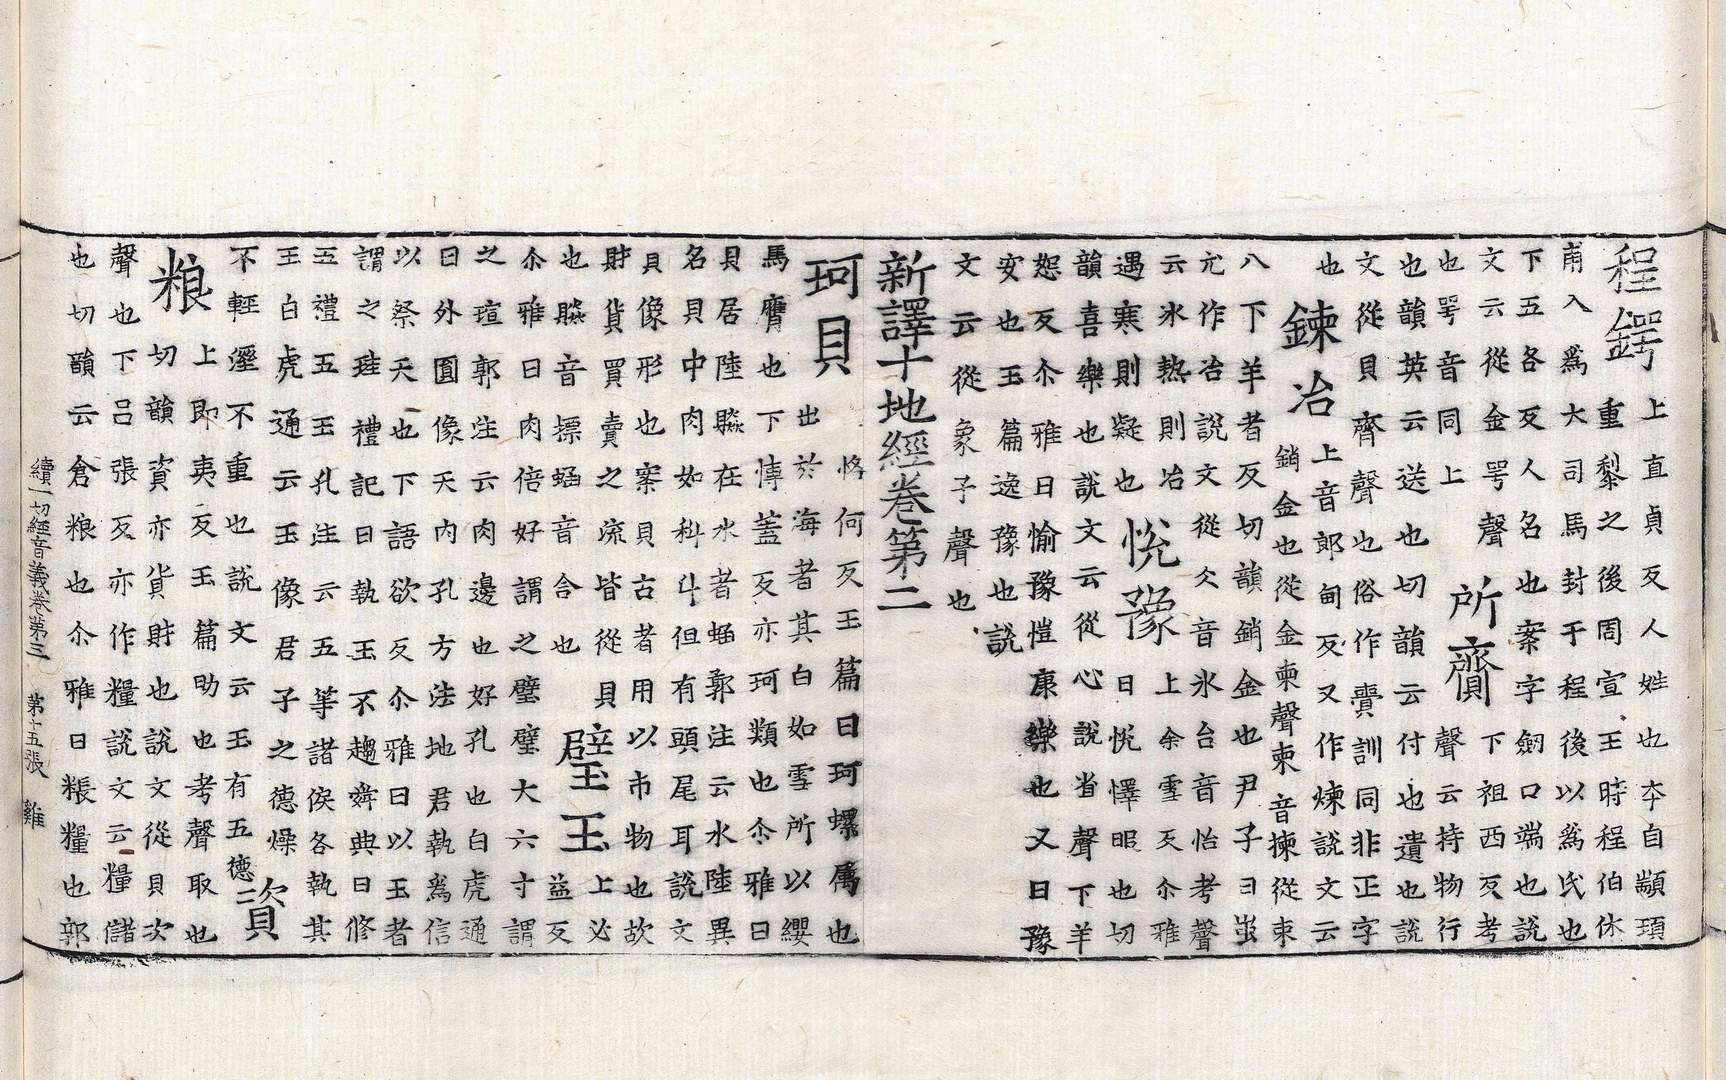 程鍔上直貞反人姓也夲自顓頊
重黎之後周宣王時程伯休
甫入爲大司馬封于程後以爲氏也
下五各反人名也案字劒口端也說
文云從金咢聲
也咢音同上
所齎下祖西反考
聲云持物行
也韻英云送也切韻云付也遺也說
文從貝齊聲也俗作賷訓同非正字
也
鍊冶上音郎甸反又作煉說文云
銷金也從金柬聲柬音揀從束
八下羊者反切韻銷金也尹子曰蚩
尤作冶說文從仌音氷台音怡考聲
云氷熱則冶
遇寒則凝也
悅豫上余雪反尒雅
曰悅懌暇也切
韻喜樂也說文云從心說省聲下羊
恕反尒雅曰愉豫愷康樂也又曰豫
安也玉篇逸豫也說
文云從象予聲也
新譯十地經卷第二
珂貝恪何反玉篇曰珂螺属也
出於海者其白如雪所以纓
馬膺也下愽蓋反亦珂類也尒雅曰
貝居陸贆在水者蝠郭注云水陸異
名貝中肉如科斗但有頭尾耳說文
貝像形也案貝古者用以市物也故
財貨買賣之流皆從貝
也贆音摽蝠音合也
璧玉上必
益反
尒雅曰肉倍好謂之璧璧大六寸謂
之瑄郭注云肉邊也好孔也白虎通
曰外圓像天内孔方法地君執爲信
以祭天也下語欲反尒雅曰以玉者
謂之珪禮記曰執玉不趨舜典曰修
五禮五玉孔注云五等諸侯各執其
玉白虎通云玉像君子之德燥
不輕濕不重也說文云玉有五德
資粮上即夷反玉篇助也考聲取也
切韻資亦貨財也說文從貝次
聲也下呂張反亦作糧說文云糧儲
也切韻云倉粮也尒雅曰粻糧也郭
續一切經音義卷第三 第十五張 雞